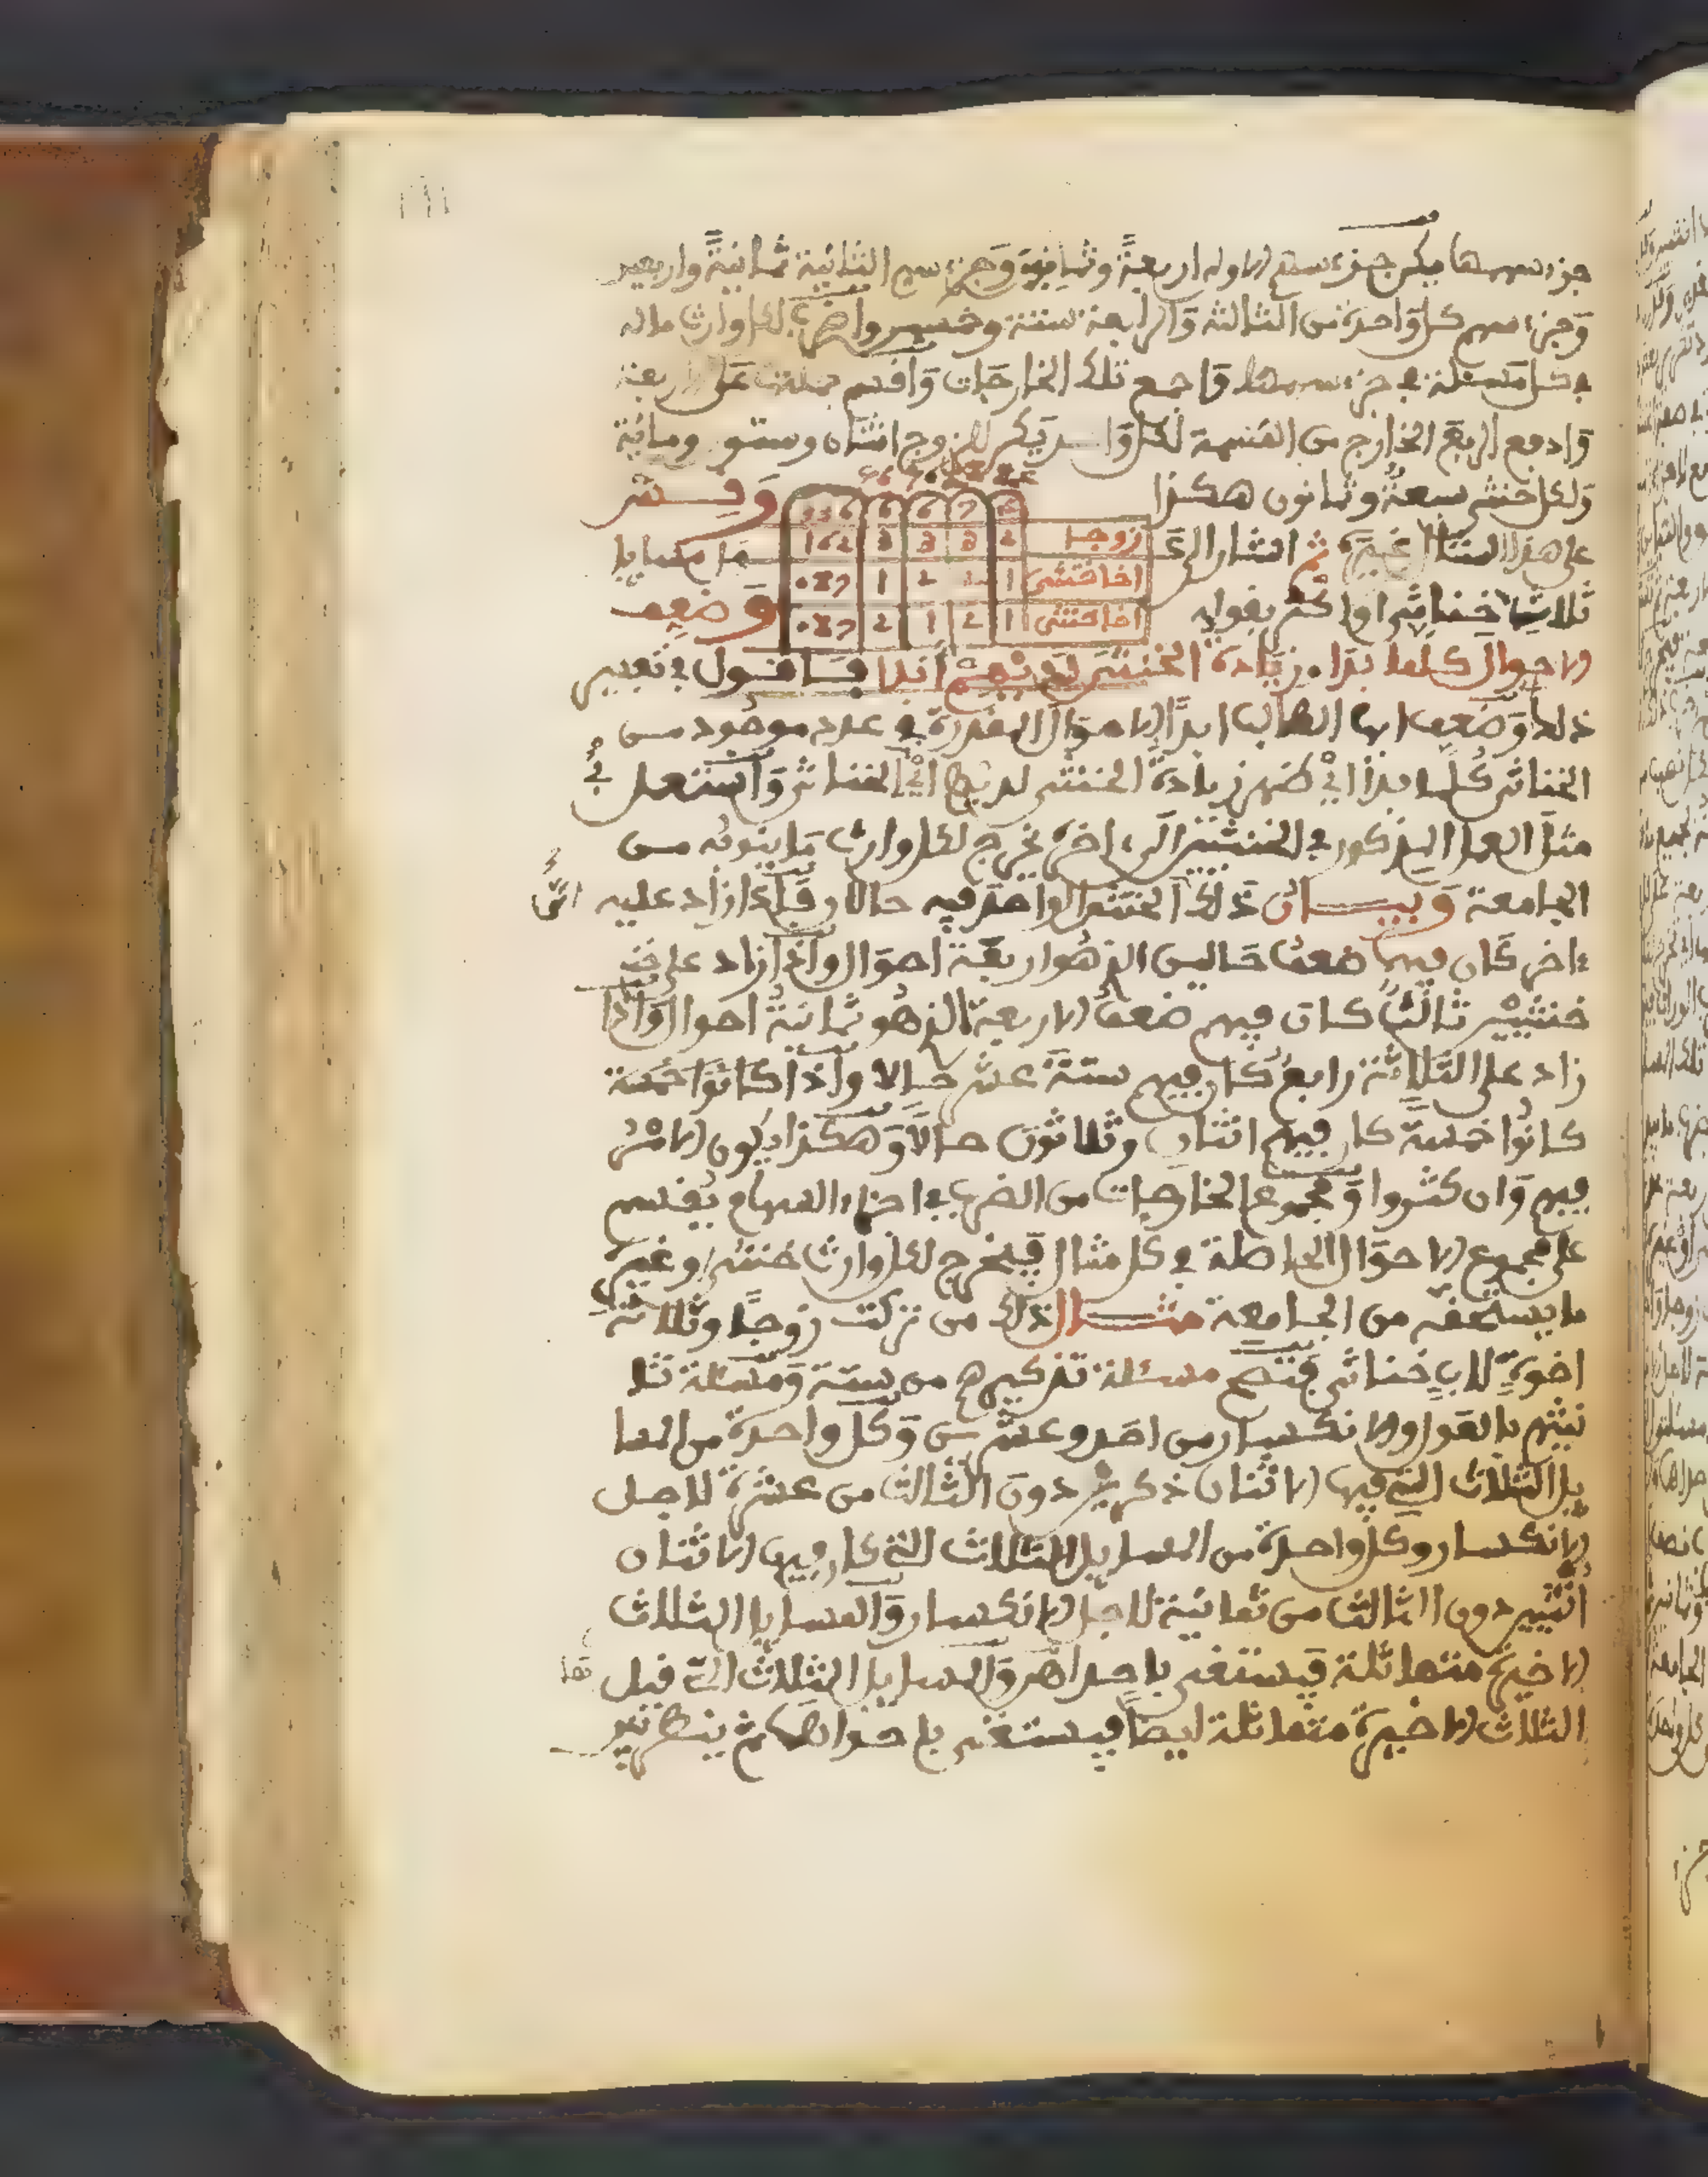 جزء سهمها فيكن جزء سهم الاولى اربعة وثمانين وجزء سهم الثانية ثمانية واربعين
وجزء سهم كل واحدة من الثالثة والرابعة ستة وخمسين واضرب لكل وارث ماله
في كل مسئلة في جزء سهمها واجمع تلك الخارجات واقسم جملتها على اربعة
وادفع الربع الخارج من القسمة لكل واحد يكن للزوج اثنان وستون ومائة
ولكل خنثى سبعة وثمانون هكذا
336 6 6 7 4
وقس
زوجا 2 3 3 3 162
على هذا المثال غيره ثم اشار الى
ما مسايل
اخا خنثى 1 2 1 087
ثلاث خناثى او اكثر بقوله
وضعف
اخا خنثى 1 2 1 2 087
الاحوال كلما بدا زيادة الخنثى لديهم ابدا فسا فنقول في تعبير
ذلك وضعف ايها الطالب ابدا الاحوال المقدرة في عدد موجود من
الخناثى كلما بدا اي ظهر زيادة الخنثى لديهم اي الخناثى واستعمل
في
مثل العمل المذكور في الخنثيين الى اخره يخرج لكل وارث ما ينوبه من
الجامعة وبيان ذلك ان الخنثى الواحد فيه حالان فإذا زاد عليه
اخر كان فيهما ضعف حالين الذي هو اربعة احوال واذا زاد على
خنثيين ثالث كان فيهم ضعف الاربعة الذي هو ثمانية احوال واذا
زاد على الثلاثة رابع كان فيهم ستة عشر حالا واذا كانوا خمسة
كانوا خمسة كان فيهم اثنان وثلاثون حالا وهكذا يكون الامر
فيهم وان كثروا ومجموع الخارجات من الضرب في اجزاء السهام يقسم
على مجموع الاحوال الحاصلة في كل مثال فيخرج لكل وارث خنثى وغيره
ما يستحقه من الجامعة مثال ذلك من تركت زوجا وثلاثة
اخوة لاب خناثى فتصح مسئلة تذكيرهم من ستة ومسئلة تا
نيثهم بالعول والانكسار من احد وعشرين وكل واحدة من المسا
يل الثلاث التي فيها الاثنان ذكرين دون الثالث من عشرة لاجل
الانكسار وكل واحدة من المسايل الثلاث التي كان فيها الاثنان
انثيين دون الثالث من ثمانية لاجل الانكسار والمسايل الثلاث
الاخيرة متماثلة فيستغنى باحداهن والمسايل الثلاث التي قبل
الثلاث الاخيرة متماثلة ايضا فيستغنى باحداهن ثم ينظر بين